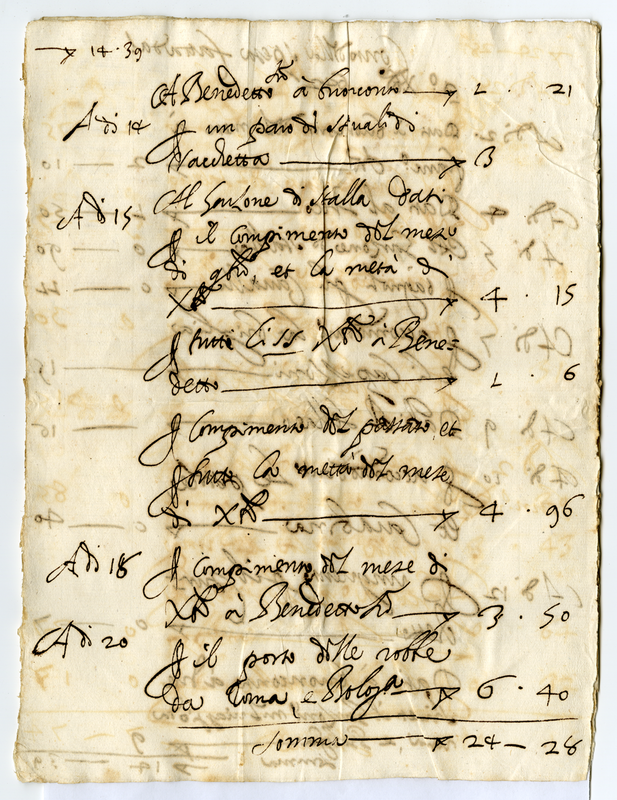 14 · 39
A Benedetto à buonconto 1 · 21
Adi 14 un paro di stivali di
vacchetta 3
Adi 15 Al Garzone di stalla dati
il compimento del mese
di 9bre, et la metà di
Xbre 4 · 15
tutti li 15 Xbre à Bene=
detto 1 · 6
compimento del passato et
tutta la mettà del mese
di Xbre 4 · 96
Adi 18 compimento del mese di
Xbre à Benedetto 3 · 50
Adi 20 il porto delle robbe
da Roma, e Bologa 6 · 40
somma 24 — 28